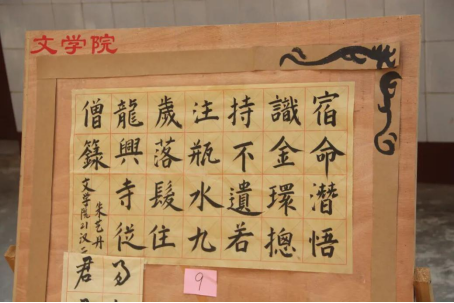 文学院
宿命潛悟
識金環摠
持不遺若
注瓶水九
歲落髮住
龍興寺從
僧籙
朱艺丹
文学院
君
9